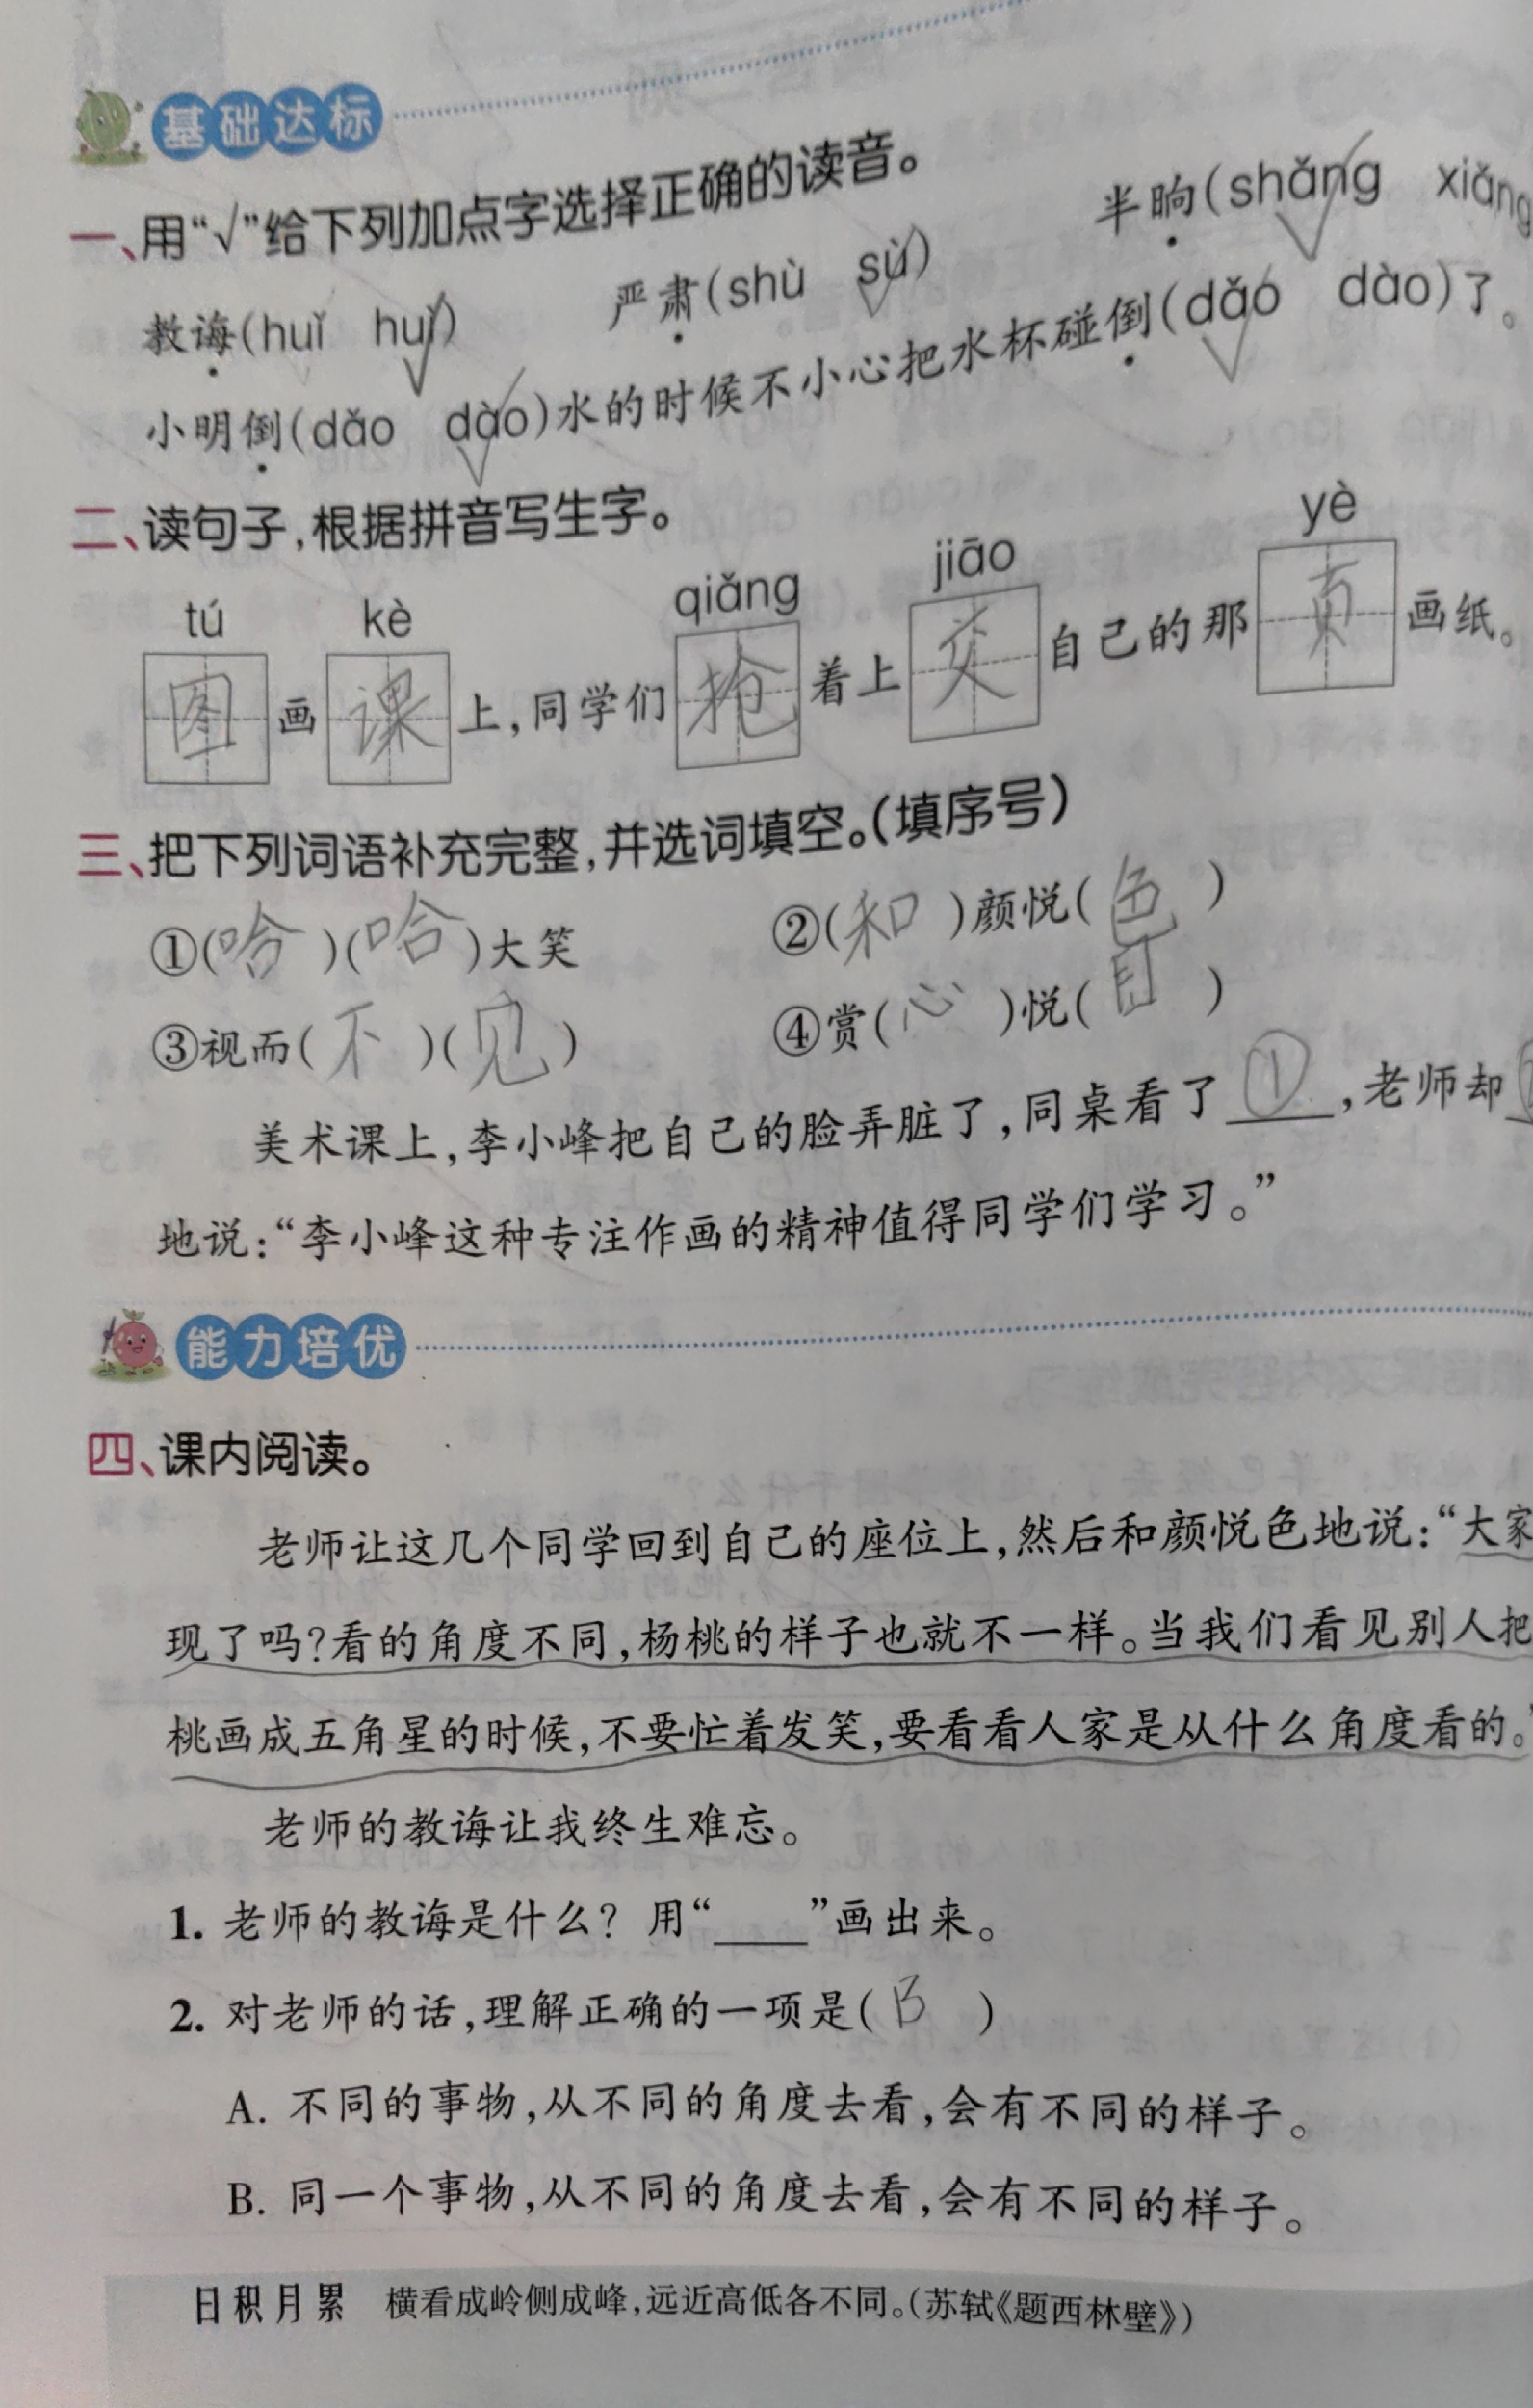 基础达标
一、用“√”给下列加点字选择正确的读音。
教诲(huǐ huì√) 严肃(shù sù√) 半晌(shǎng√ xiǎng
小明倒(dǎo dào√)水的时候不小心把水杯碰倒(dǎo√ dào)了。
二、读句子,根据拼音写生字。
tú kè qiǎng jiāo yè
图画课上,同学们抢着上交自己的那页画纸。
三、把下列词语补充完整,并选词填空。(填序号)
①(哈)(哈)大笑 ②(和)颜悦(色)
③视而(不)(见) ④赏(心)悦(目)
美术课上,李小峰把自己的脸弄脏了,同桌看了①,老师却
地说:“李小峰这种专注作画的精神值得同学们学习。”
能力培优
四、课内阅读。
老师让这几个同学回到自己的座位上,然后和颜悦色地说:“大家
现了吗?看的角度不同,杨桃的样子也就不一样。当我们看见别人把
桃画成五角星的时候,不要忙着发笑,要看看人家是从什么角度看的。”
老师的教诲让我终生难忘。
1. 老师的教诲是什么? 用“____”画出来。
2. 对老师的话,理解正确的一项是(B)
A. 不同的事物,从不同的角度去看,会有不同的样子。
B. 同一个事物,从不同的角度去看,会有不同的样子。
日积月累 横看成岭侧成峰,远近高低各不同。(苏轼《题西林壁》)